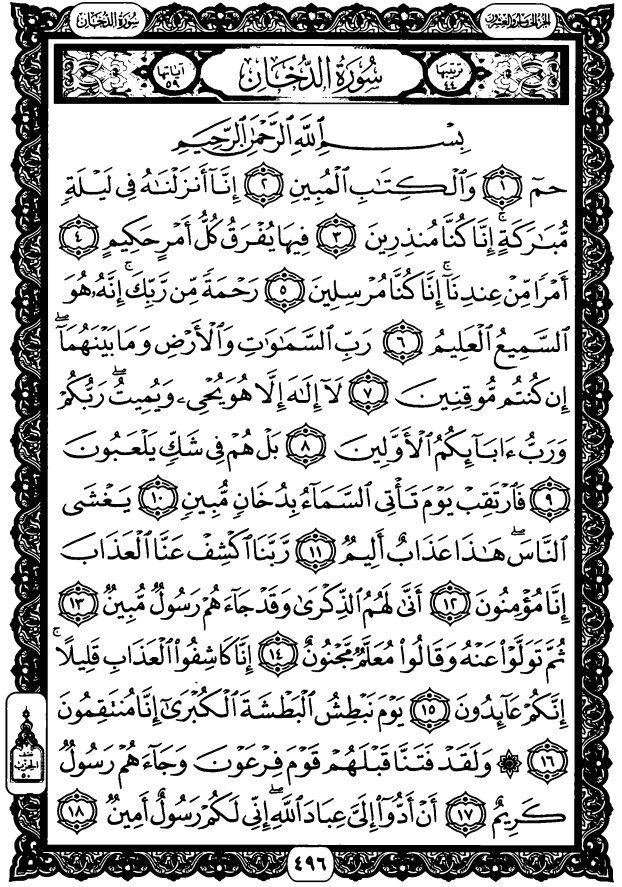 الجزء الخامس والعشرون
سورة الدخان
ترتيبها ٤٤
سُورَةُ الدُّخَانِ
آياتها ٥٩
بِسْمِ اللَّهِ الرَّحْمَٰنِ الرَّحِيمِ
حمٓ ١ وَٱلۡكِتَٰبِ ٱلۡمُبِينِ ٢ إِنَّآ أَنزَلۡنَٰهُ فِي لَيۡلَةٖ
مُّبَٰرَكَةٍۚ إِنَّا كُنَّا مُنذِرِينَ ٣ فِيهَا يُفۡرَقُ كُلُّ أَمۡرٍ حَكِيمٍ ٤
أَمۡرٗا مِّنۡ عِندِنَآۚ إِنَّا كُنَّا مُرۡسِلِينَ ٥ رَحۡمَةٗ مِّن رَّبِّكَۚ إِنَّهُۥ هُوَ
ٱلسَّمِيعُ ٱلۡعَلِيمُ ٦ رَبِّ ٱلسَّمَٰوَٰتِ وَٱلۡأَرۡضِ وَمَا بَيۡنَهُمَآۖ
إِن كُنتُم مُّوقِنِينَ ٧ لَآ إِلَٰهَ إِلَّا هُوَ يُحۡيِۦ وَيُمِيتُۖ رَبُّكُمۡ
وَرَبُّ ءَابَآئِكُمُ ٱلۡأَوَّلِينَ ٨ بَلۡ هُمۡ فِي شَكّٖ يَلۡعَبُونَ
٩ فَٱرۡتَقِبۡ يَوۡمَ تَأۡتِي ٱلسَّمَآءُ بِدُخَانٖ مُّبِينٖ ١٠ يَغۡشَى
ٱلنَّاسَۖ هَٰذَا عَذَابٌ أَلِيمٞ ١١ رَّبَّنَا ٱكۡشِفۡ عَنَّا ٱلۡعَذَابَ
إِنَّا مُؤۡمِنُونَ ١٢ أَنَّىٰ لَهُمُ ٱلذِّكۡرَىٰ وَقَدۡ جَآءَهُمۡ رَسُولٞ مُّبِينٞ ١٣
ثُمَّ تَوَلَّوۡاْ عَنۡهُ وَقَالُواْ مُعَلَّمٞ مَّجۡنُونٌ ١٤ إِنَّا كَاشِفُواْ ٱلۡعَذَابِ قَلِيلًاۚ
إِنَّكُمۡ عَآئِدُونَ ١٥ يَوۡمَ نَبۡطِشُ ٱلۡبَطۡشَةَ ٱلۡكُبۡرَىٰٓ إِنَّا مُنتَقِمُونَ
١٦ ۞ وَلَقَدۡ فَتَنَّا قَبۡلَهُمۡ قَوۡمَ فِرۡعَوۡنَ وَجَآءَهُمۡ رَسُولٞ
كَرِيمٌ ١٧ أَنۡ أَدُّوٓاْ إِلَيَّ عِبَادَ ٱللَّهِۖ إِنِّي لَكُمۡ رَسُولٌ أَمِينٞ ١٨
نصف
الحزب
٥٠
٤٩٦